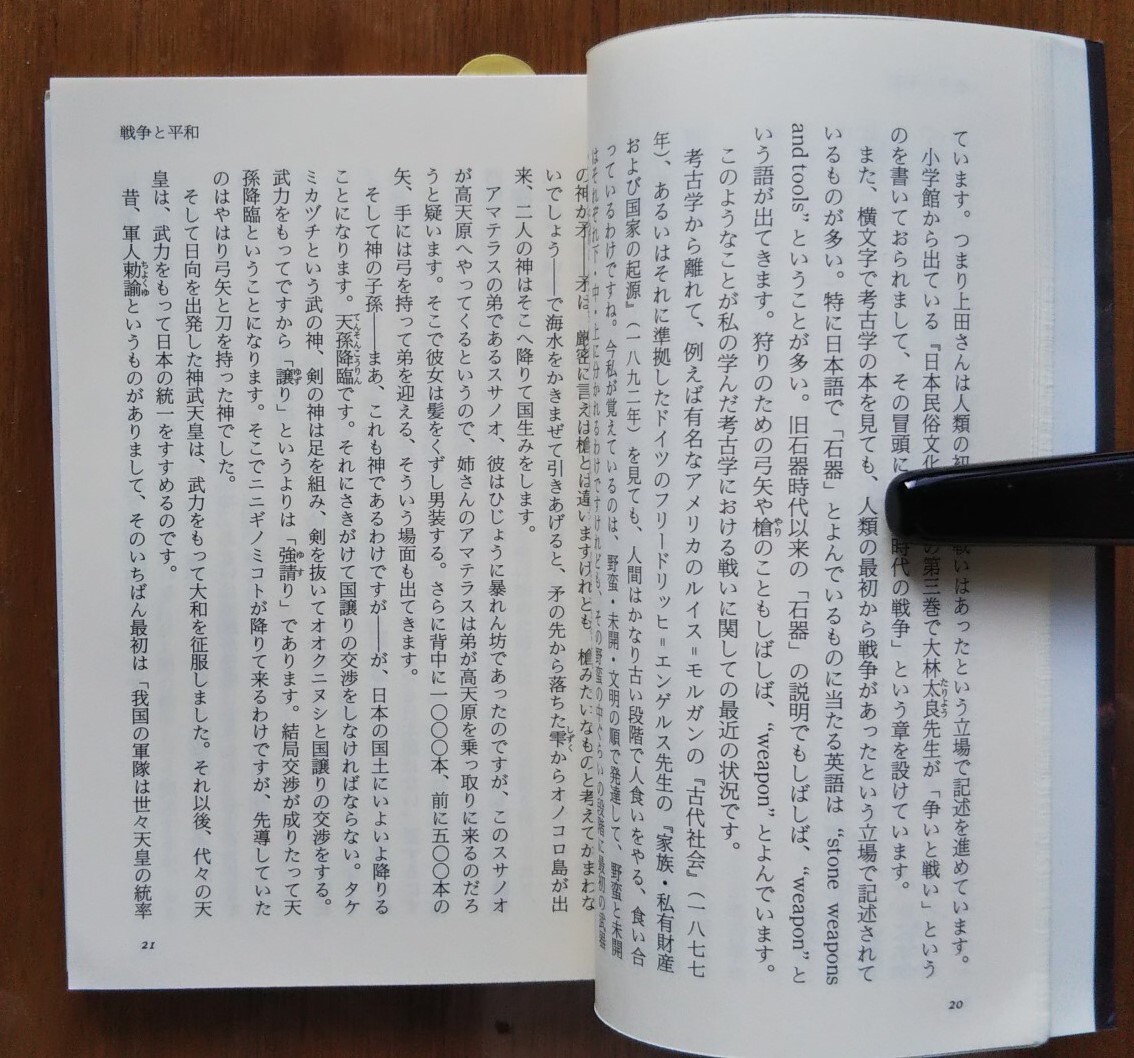 ています。つまり上田さんは人類の初 戦いはあったという立場で記述を進めています。
小学館から出ている『日本民俗文化 の第三巻で大林太良先生が「争いと戦い」という
のを書いておられまして、その冒頭に 時代の戦争」という章を設けています。
また、横文字で考古学の本を見ても、人類の最初から戦争があったという立場で記述されて
いるものが多い。特に日本語で「石器」とよんでいるものに当たる英語は “stone weapons
and tools” ということが多い。旧石器時代以来の「石器」の説明でもしばしば、“weapon” と
いう語が出てきます。狩りのための弓矢や槍のこともしばしば、“weapon” とよんでいます。
このようなことが私の学んだ考古学における戦いに関しての最近の状況です。
考古学から離れて、例えば有名なアメリカのルイス＝モルガンの『古代社会』(一八七七
年)、あるいはそれに準拠したドイツのフリードリッヒ＝エンゲルス先生の『家族・私有財産
および国家の起源』(一八九二年)を見ても、人間はかなり古い段階で人食いをやる、食い合
っているわけですね。今私が覚えているのは、野蛮・未開・文明の順で発達して、野蛮と未開
はそれぞれ下・中・上に分かれるわけですけれども、その野蛮の中ぐらいの段階に最初の武器
20
の神が矛――矛は、厳密に言えば槍とは違いますけれども、槍みたいなものと考えてかまわな
いでしょう――で海水をかきまぜて引きあげると、矛の先から落ちた雫からオノコロ島が出
来、二人の神はそこへ降りて国生みをします。
アマテラスの弟であるスサノオ、彼はひじょうに暴れん坊であったのですが、このスサノオ
が高天原へやってくるというので、姉さんのアマテラスは弟が高天原を乗っ取りに来るのだろ
うと疑います。そこで彼女は髪をくずし男装する。さらに背中に一〇〇〇本、前に五〇〇本の
矢、手には弓を持って弟を迎える、そういう場面も出てきます。
そして神の子孫――まあ、これも神であるわけですが――が、日本の国土にいよいよ降りる
ことになります。天孫降臨です。それにさきがけて国譲りの交渉をしなければならない。タケ
ミカヅチという武の神、剣の神は足を組み、剣を抜いてオオクニヌシと国譲りの交渉をする。
武力をもってですから「譲り」というよりは「強請り」であります。結局交渉が成りたって天
孫降臨ということになります。そこでニニギノミコトが降りて来るわけですが、先導していた
のはやはり弓矢と刀を持った神でした。
そして日向を出発した神武天皇は、武力をもって大和を征服しました。それ以後、代々の天
皇は、武力をもって日本の統一をすすめるのです。
昔、軍人勅諭というものがありまして、そのいちばん最初は「我国の軍隊は世々天皇の統率
戦争と平和
21